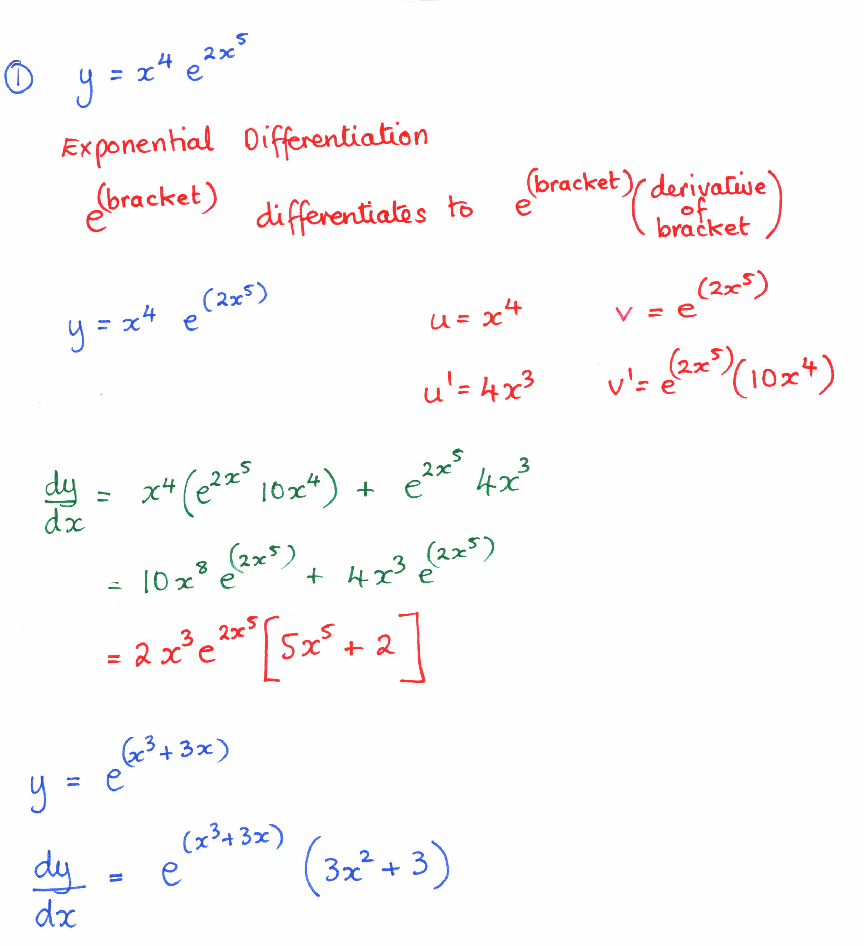 ① y = x⁴ e^(2x⁵)
Exponential Differentiation
e^(bracket) differentiates to e^(bracket) (derivative of bracket)
y = x⁴ e^(2x⁵) u = x⁴ v = e^(2x⁵)
u' = 4x³ v' = e^(2x⁵)(10x⁴)
dy/dx = x⁴(e^(2x⁵) 10x⁴) + e^(2x⁵) 4x³
= 10x⁸ e^(2x⁵) + 4x³ e^(2x⁵)
= 2x³e^(2x⁵)[5x⁵ + 2]
y = e^(x³+3x)
dy/dx = e^(x³+3x) (3x² + 3)